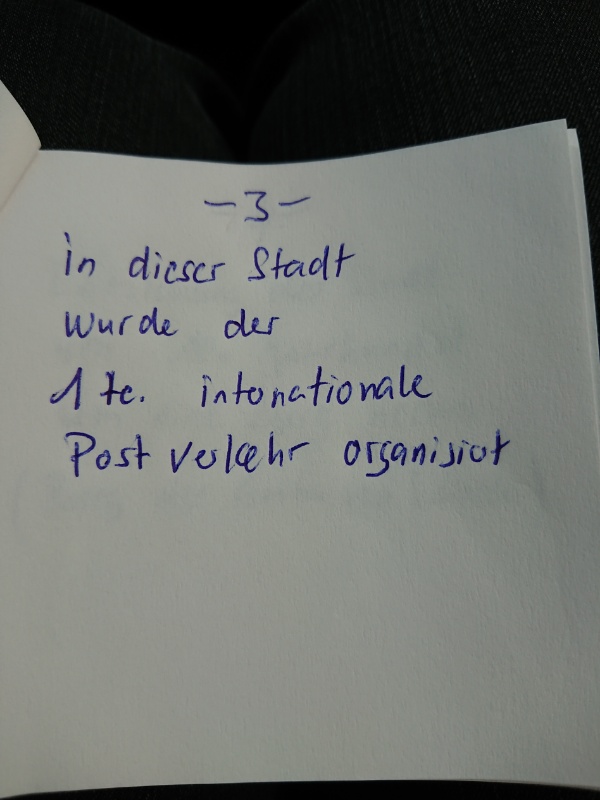 -3-
in dieser Stadt
wurde der
1te. internationale
Post verkehr organisiert